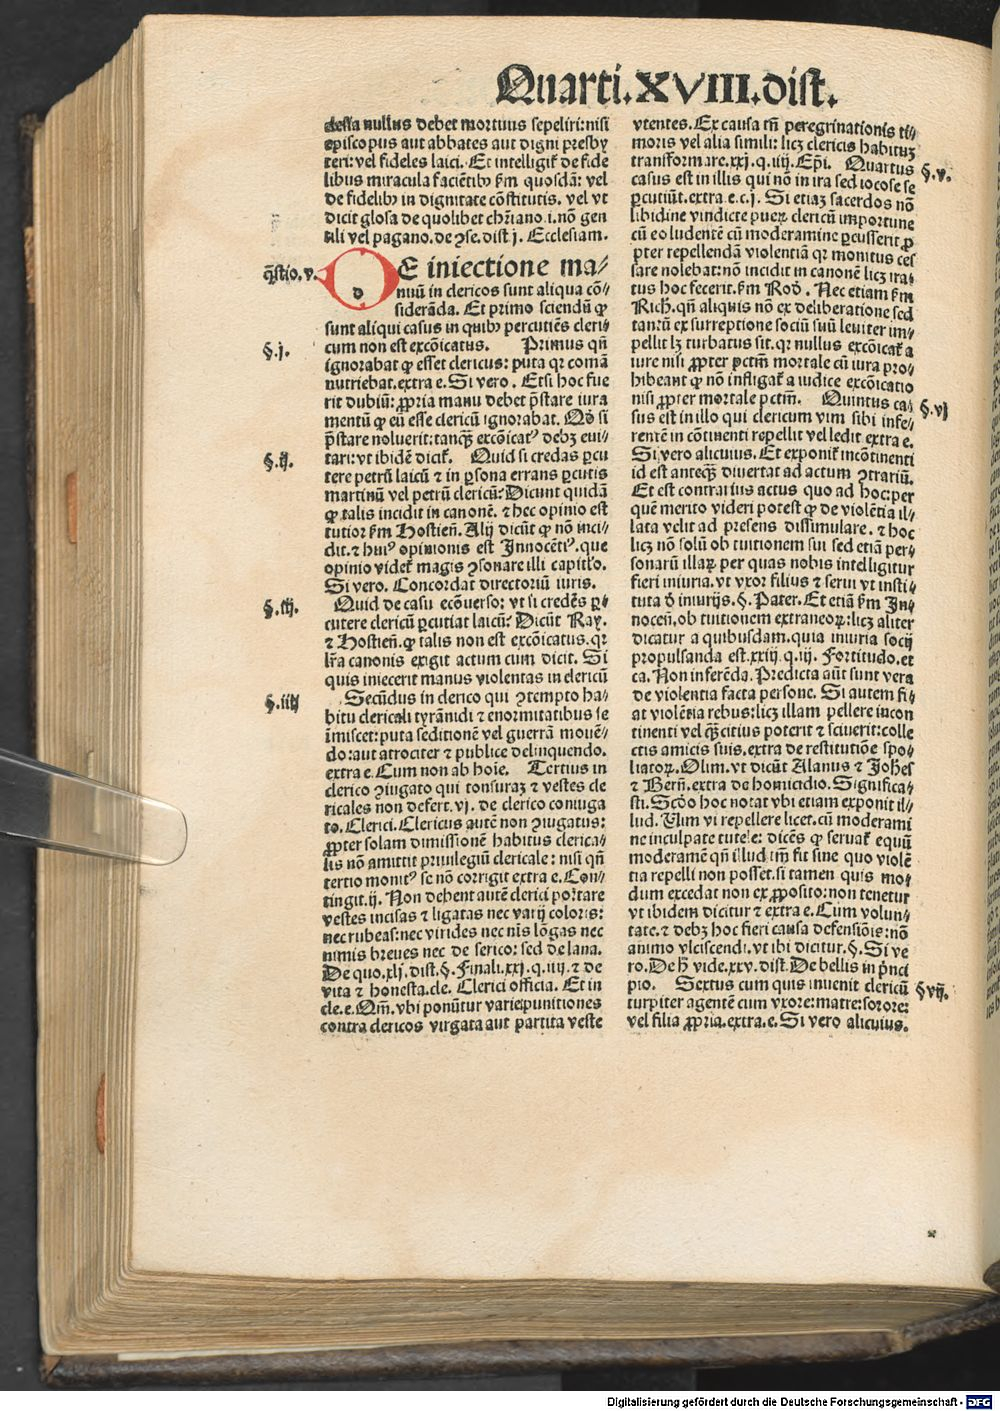 Quarti.XVIII.dist.
clesia nullus debet mortuus sepeliri: nisi
episcopus aut abbates aut digni presby
teri: vel fideles laici. Et intelligit̃ de fide
libus miracula faciētibꝰ ẜm quosdā: vel
de fidelibꝰ in dignitate cōstitutis. vel vt
dicit glosa de quolibet chr̄iano.i.nō gen
tili vel pagano.de ꝯse.dist j. Ecclesiam.
q̄stio.v.
d
E iniectione ma⸗
nuū in clericos sunt aliqua cō⸗
siderāda. Et primo sciendū ꝙ
sunt aliqui casus in quibꝰ percutiēs cleri⸗
cum non est excōicatus. Primus qn̄
§.j.
ignorabat ꝙ esset clericus: puta qr comā
nutriebat.extra e.Si vero. Etsi hoc fue
rit dubiū: ꝓpria manu debet p̄stare iura
mentū ꝙ eū esse clericū ignorabat. Qō si
p̄stare noluerit: tanqȝ excōicatꝰ debȝ eui⸗
tari: vt ibidē dicit̃. Quid si credas ꝑcu
§.ij.
tere petrū laicū ⁊ in ꝑsona errans ꝑcutis
martinū vel petrū clericū? Dicunt quidā
ꝙ talis incidit in canonē. ⁊ hec opinio est
tutior ẜm Hostien̄. Alij dicūt ꝙ nō inci⸗
dit. ⁊ huiꝰ opinionis est Innocētiꝰ. que
opinio videt̃ magis ꝯsonare illi capit̄lo.
Si vero. Concordat directoriū iuris.
Quid de casu ecōuerso: vt si credēs ꝑ⸗
§.iij.
cutere clericū ꝑcutiat laicū? Dicūt Ray.
⁊ Hostien̄.ꝙ talis non est excōicatus.qr
lr̄a canonis exigit actum cum dicit. Si
quis iniecerit manus violentas in clericū
Secūdus in clerico qui ꝯtempto ha⸗
§.iiij
bitu clericali tyrānidi ⁊ enormitatibus se
īmiscet: puta seditionē vel guerrā mouē⸗
do: aut atrociter ⁊ publice delinquendo.
extra e. Cum non ab hoīe. Tertius in
clerico ꝯiugato qui tonsuraȝ ⁊ vestes cle
ricales non defert.vj. de clerico coniuga
to. Clerici. Clericus autē non ꝯiugatus:
ꝓpter solam dimissionē habitus clerica⸗
lis nō amittit priuilegiū clericale: nisi qn̄
tertio monitꝰ se nō corrigit extra e. Con⸗
tingit.ij. Non debent autē clerici portare
vestes incisas ⁊ ligatas nec varij coloris:
nec rubeas: nec virides nec nīs lōgas nec
nimis breues nec de serico: sed de lana.
De quo.xlj.dist.§.Finali.xxj.q.iiij. ⁊ de
vita ⁊ honesta.cle. Clerici officia. Et in
cle.e.Qm̄.vbi ponūtur varie punitiones
contra clericos virgata aut partita veste
vtentes. Ex causa tn̄ peregrinationis ti⸗
moris vel alia simili: licȝ clericis habituȝ
transformare.xxj.q.iiij. Ep̄i. Quartus
§.v.
casus est in illis qui nō in ira sed iocose se
ꝑcutiūt.extra.e.c.j. Si etiaȝ sacerdos nō
libidine vindicte pueꝝ clericū importune
cū eo ludentē cū moderamine ꝑcusserit ꝓ
pter repellendā violentiā qr monitus ces
sare nolebat: nō incidit in canonē licȝ ira⸗
tus hoc fecerit.ẜm Rod̄. Nec etiam ẜm
Rich.qn̄ aliquis nō ex deliberatione sed
tantū ex surreptione sociū suū leuiter im⸗
pellit lȝ turbatus sit. qr nullus excōicat̃ a
iure nisi ꝓpter pctm̄ mortale cū iura pro⸗
hibeant ꝙ nō infligat̃ a iudice excōicatio
nisi ꝓpter mortale pctm̄. Quintus ca⸗
§.vj
sus est in illo qui clericum vim sibi infe⸗
rentē in cōtinenti repellit vel ledit extra e.
Si vero alicuius. Et exponit̃ incōtinenti
id est anteqȝ diuertat ad actum ꝯtrariū.
Et est contrarius actus quo ad hoc: per
quē merito videri potest ꝙ de violētia il⸗
lata velit ad presens dissimulare. ⁊ hoc
licȝ nō solū ob tuitionem sui sed etiā per⸗
sonarū illaꝝ per quas nobis intelligitur
fieri iniuria. vt vxor filius ⁊ serui vt insti⸗
tuta d̄ iniurijs.§.Pater. Et etiā ẜm In⸗
nocen̄.ob tuitionem extraneoꝝ: licȝ aliter
dicatur a quibusdam.quia iniuria socij
propulsanda est.xxiij.q.iij. Fortitudo.et
ca.Non inferēda. Predicta aūt sunt vera
de violentia facta persone. Si autem fi⸗
at violētia rebus: licȝ illam pellere incon
tinenti vel qȝcitius poterit ⁊ sciuerit: colle
ctis amicis suis.extra de restitutiōe spo⸗
liatoꝝ. Olim. vt dicūt Alanus ⁊ Joh̄es
⁊ Bern̄.extra de homicidio. Significa⸗
sti. Scd̄o hoc notat vbi etiam exponit il⸗
lud. Vim vi repellere licet.cū moderami
ne inculpate tutele: dicēs ꝙ seruat̃ equū
moderamē qn̄ illud im̄ fit sine quo violē
tia repelli non posset. si tamen quis mo⸗
dum excedat non ex ꝓposito: non tenetur
vt ibidem dicitur ⁊ extra e. Cum volun⸗
tate. ⁊ debȝ hoc fieri causa defensiōis: nō
animo vlciscendi. vt ibi dicitur.§.Si ve
ro. De h̄ vide.xxv.dist. De bellis in p̄nci
pio. Sextus cum quis inuenit clericū
§.vij.
turpiter agentē cum vxore: matre: sorore:
vel filia ꝓpria.extra.e. Si vero alicuius.
Digitalisierung gefördert durch die Deutsche Forschungsgemeinschaft - DFG